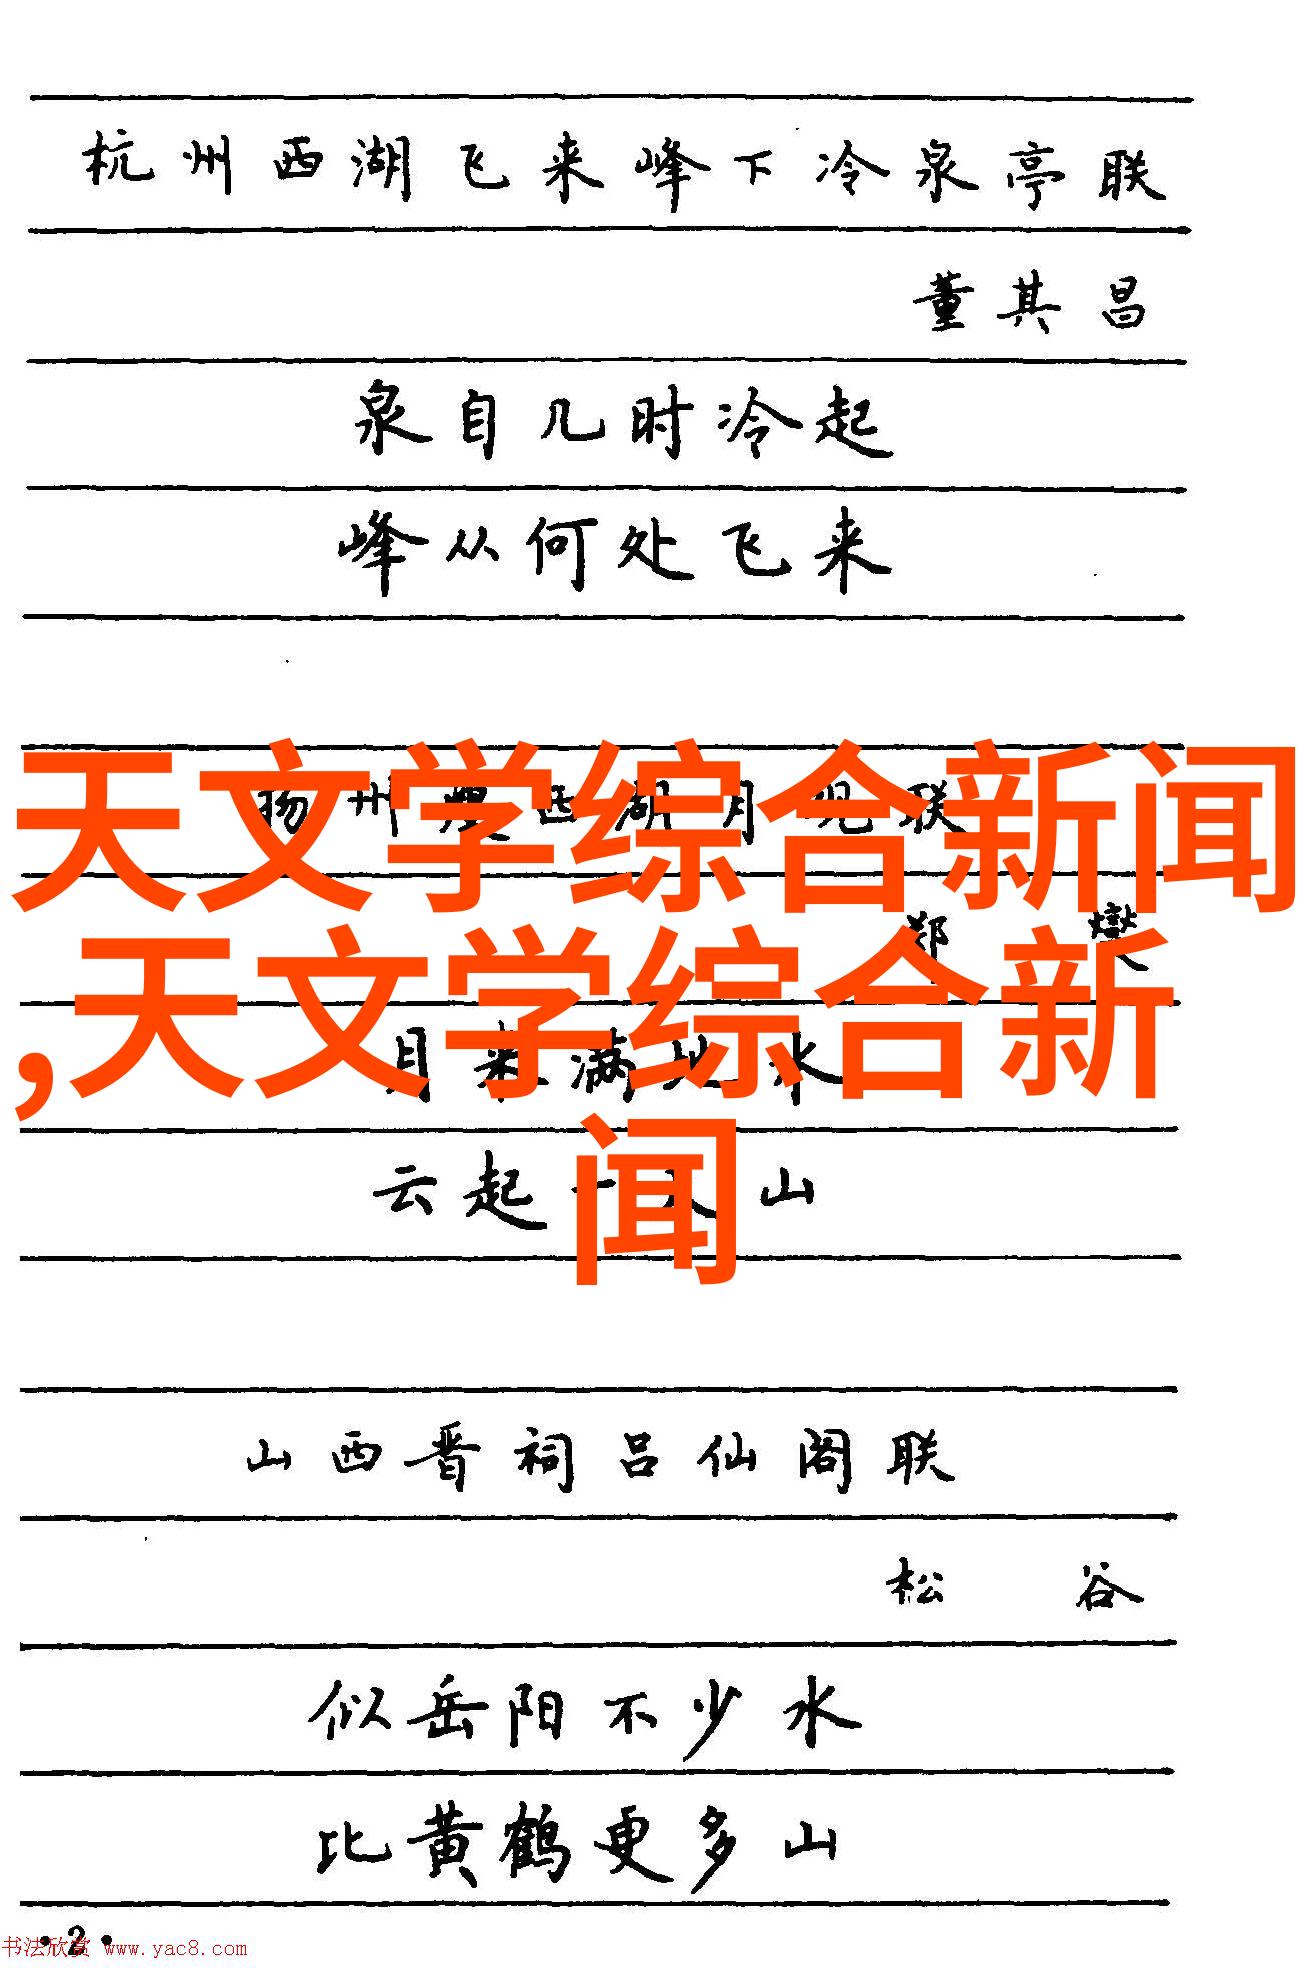 杭州西湖飞来峰下冷泉亭联
董其昌
泉自几时冷起
峰从何处飞来
扬州瘦西湖月观联
天文学综合新闻
郑燮
,天文学综合新
月来满地水
闻
云起一天山
山西晋祠吕仙阁联
松谷
似岳阳不少水
比黄鹤更多山
·2·
书法欣赏 www.yac8.com